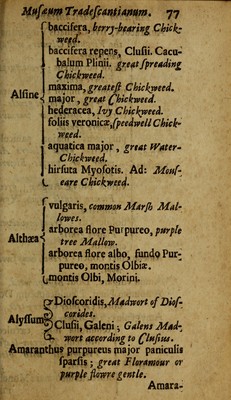 Musæum Tradescantianum. 77
baccifera, berry-bearing Chick-
weed.
baccifera repens, Clusii. Cacu-
balum Plinii. great spreading
Chickweed.
maxima, greatest Chickweed.
Alsine major, great Chickweed.
hederacea, Ivy Chickweed.
foliis veronicæ, speedwell Chick-
weed.
aquatica major, great Water-
Chickweed.
hirsuta Myosotis. Ad: Mous-
eare Chickweed.
vulgaris, common Marsh Mal-
lowes.
arborea flore Purpureo, purple
Althæa tree Mallow.
arborea flore albo, fundo Pur-
pureo, montis Olbiæ.
montis Olbi, Morini.
Dioscoridis, Madwort of Dios-
Alyssum corides.
Clusii, Galeni; Galens Mad-
wort according to Clusius.
Amaranthus purpureus major paniculis
sparsis; great Floramour or
purple flowre gentle.
Amara-